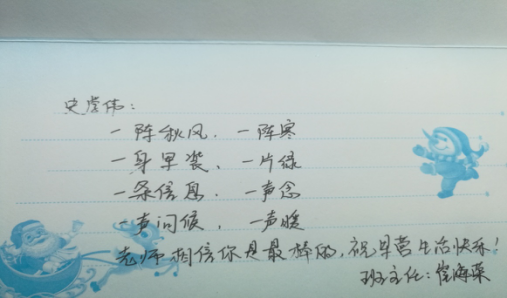 史堂伟：
一阵秋风、一阵寒
一身军装、一片绿
一条信息、一声念
一声问候、一声暖
老师相信你是最棒的，祝军营生活快乐！
班主任：崔海荣